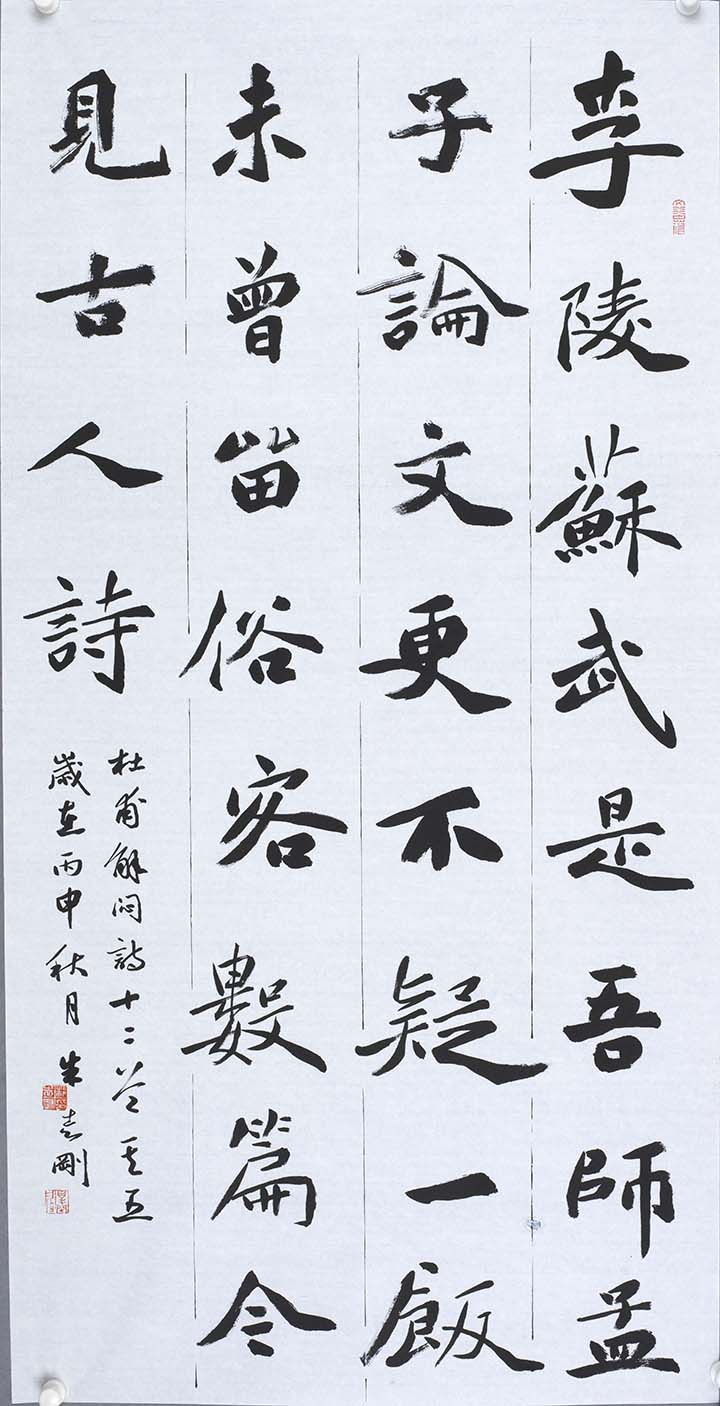 李陵蘇武是吾師孟
子論文更不疑一飯
未曾留俗客數篇今
見古人詩
杜甫解悶詩十二首其五
歲在丙申秋月朱剛